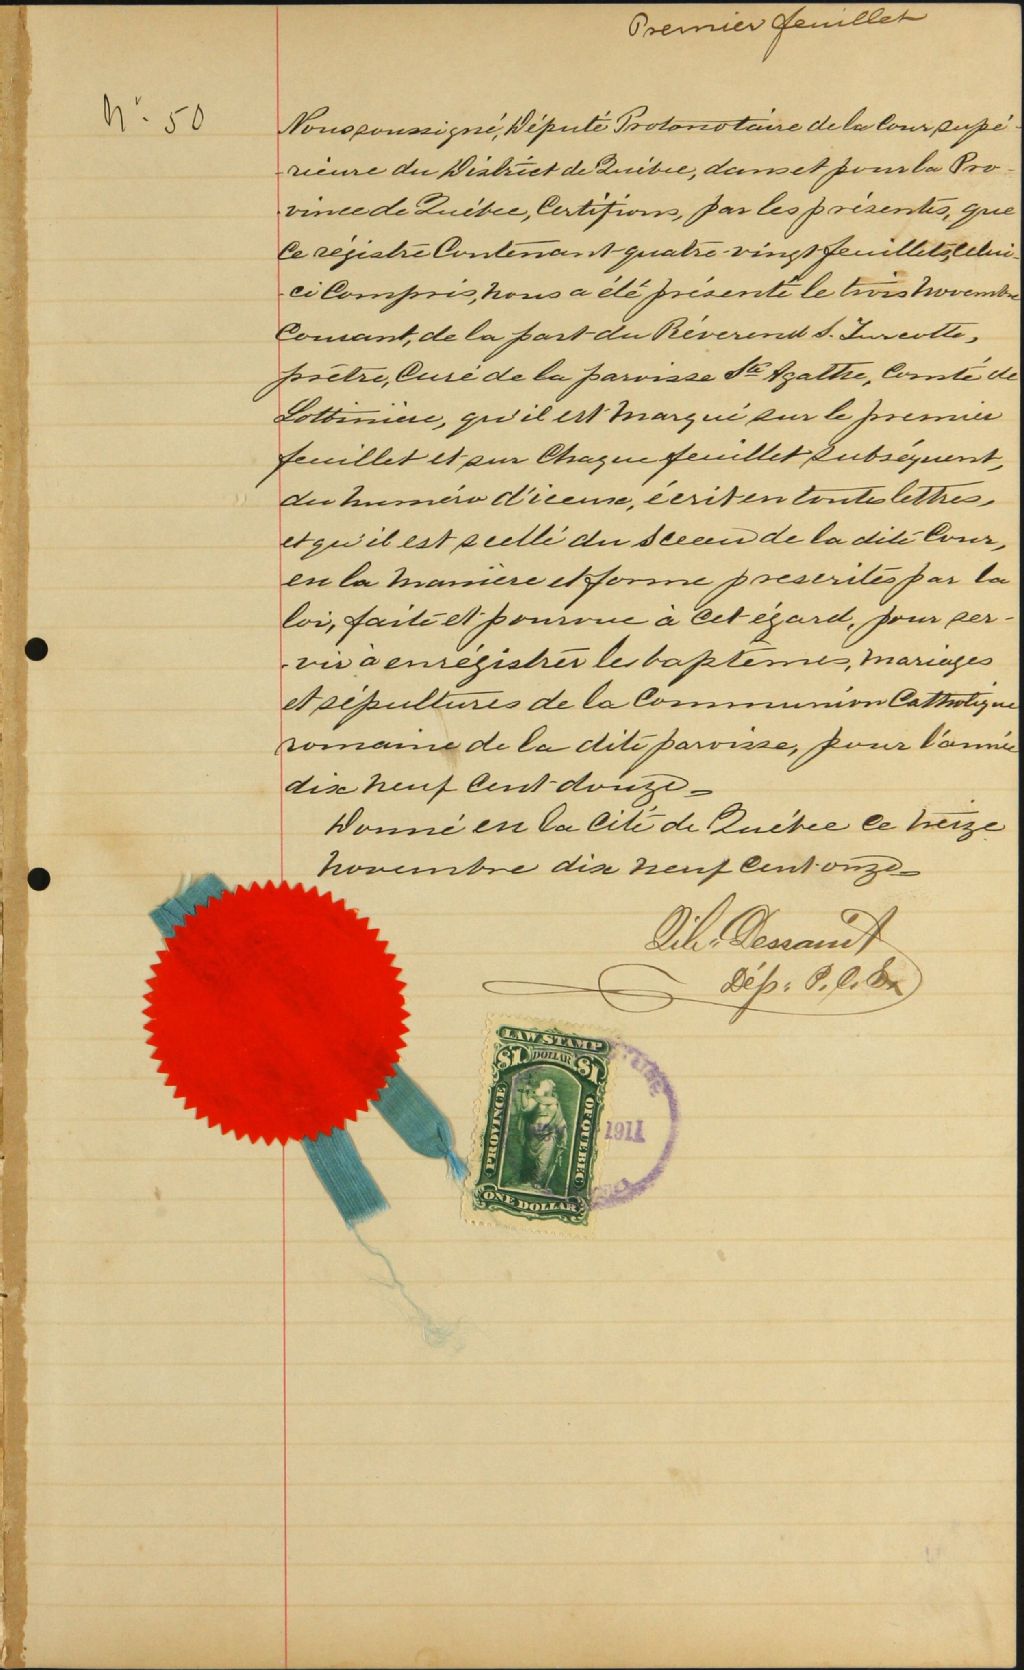 Premier feuillet
No. 50
Nous soussigné, Député Protonotaire de la Cour supé-
rieure du District de Québec, dans et pour la Pro-
vince de Québec, Certifions, par les présentes, que
Ce régistre Contenant quatre-vingt feuillets, Celui-
ci Compris, nous a été présenté le trois Novembre
Courant, de la part du Réverend S. Turcotte,
prêtre, Curé de la paroisse Ste Agathe, Comté de
Lotbinière, qu'il est marqué sur le premier
feuillet et sur Chaque feuillet subséquent,
du numéro d'iceux, écrit en toutes lettres,
et qu'il est scellé du Sceau de la dite Cour,
en la manière et forme prescrites par la
loi, faite et pourvue à cet égard, pour ser-
vir à enrégistrer les baptêmes, mariages
et sépultures de la Communion Catholique
romaine de la dite paroisse, pour l'année
dix neuf Cent douze_
Donné en la Cité de Québec ce treize
Novembre dix neuf Cent onze_
Dép. P. C. S.
LAW STAMP
$1 DOLLAR $1
PROVINCE OF QUEBEC
1911
ONE DOLLAR